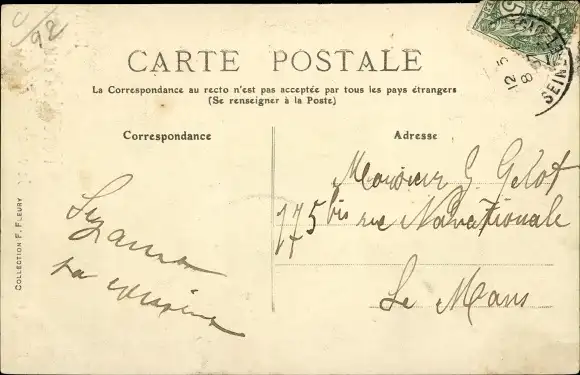 92
5
12 - 5
8
SEINE
CARTE POSTALE
La Correspondance au recto n'est pas acceptée par tous les pays étrangers
(Se renseigner à la Poste)
Correspondance
Adresse
COLLECTION F. FLEURY
Suzanne
ta cousine
Monsieur G. Gelot
175 bis rue Nationale
Le Mans